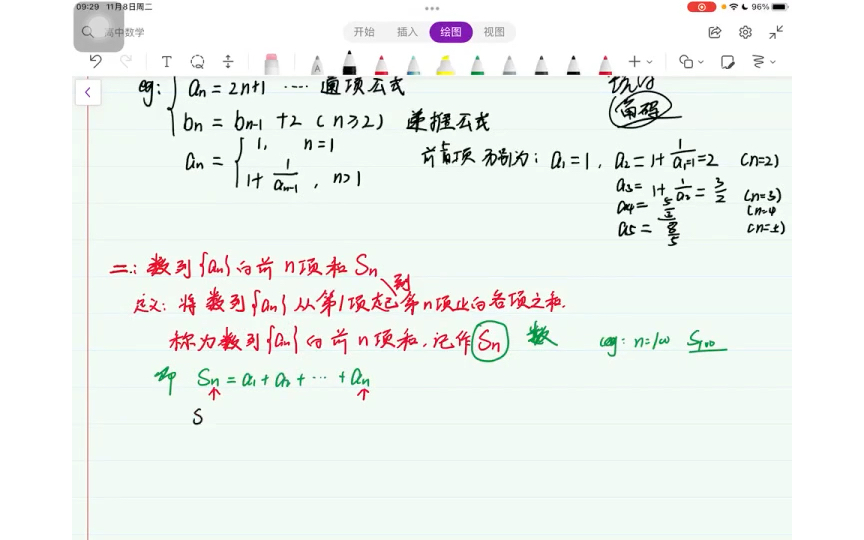 09:29 11月8日周二
96%
高中数学
开始 插入 绘图 视图
eg: { an = 2n+1 ···· 通项公式
bn = bn-1 + 2 (n≥2) 递推公式
角码
an = { 1, n=1
1 + 1/an-1, n>1
前五项分别为: a1=1, a2=1+1/a1=1=2 (n=2)
a3=1+1/a2=3/2 (n=3)
a4=5/3 (n=4
a5=8/5 (n=5)
二: 数列{an}的前n项和Sn
到
定义: 将数列{an}从第1项起第n项止的各项之和.
称为数列{an}的前n项和, 记作Sn 数 eg: n=100 S100
即 Sn = a1 + a2 + ··· + an
S